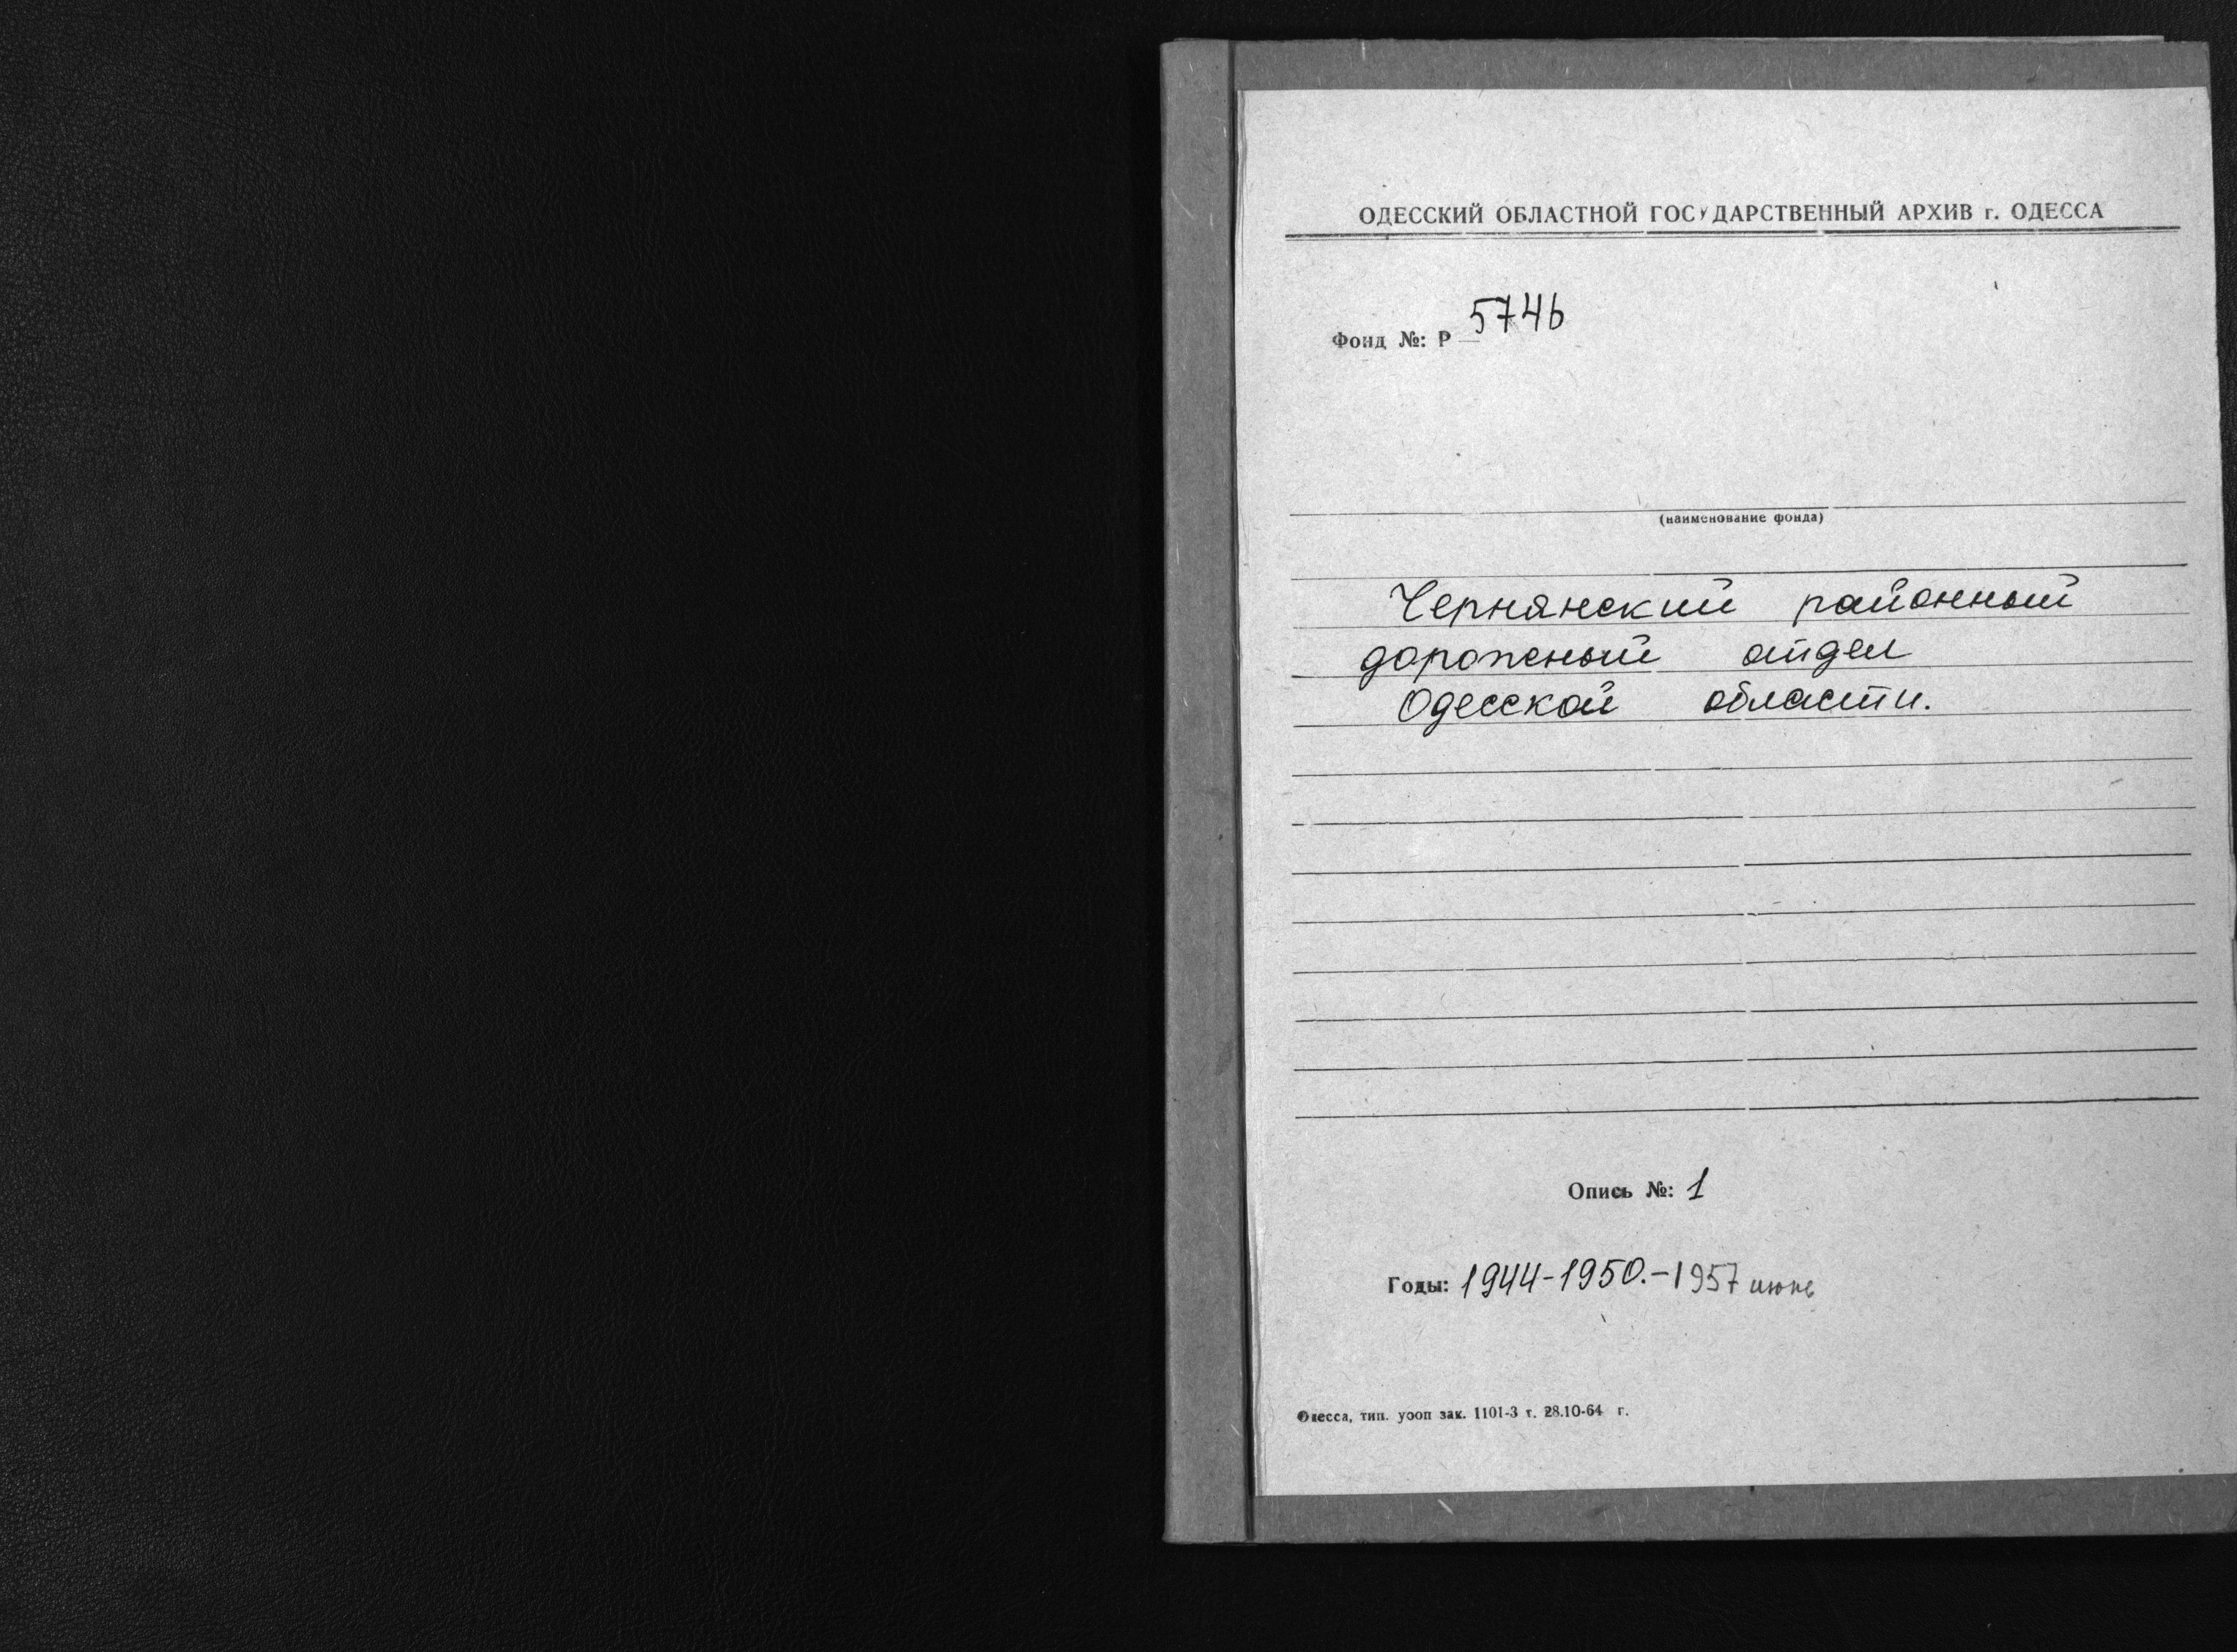 ОДЕССКИЙ ОБЛАСТНОЙ ГОСУДАРСТВЕННЫЙ АРХИВ г. ОДЕССА
Фонд №: Р 5746
(наименование фонда)
Чернянский районный
дорожный отдел
Одесской области.
Опись №: 1
Годы: 1944-1950.-1957 июнь
Одесса, тип. уооп зак. 1101-3 т. 28.10-64 г.